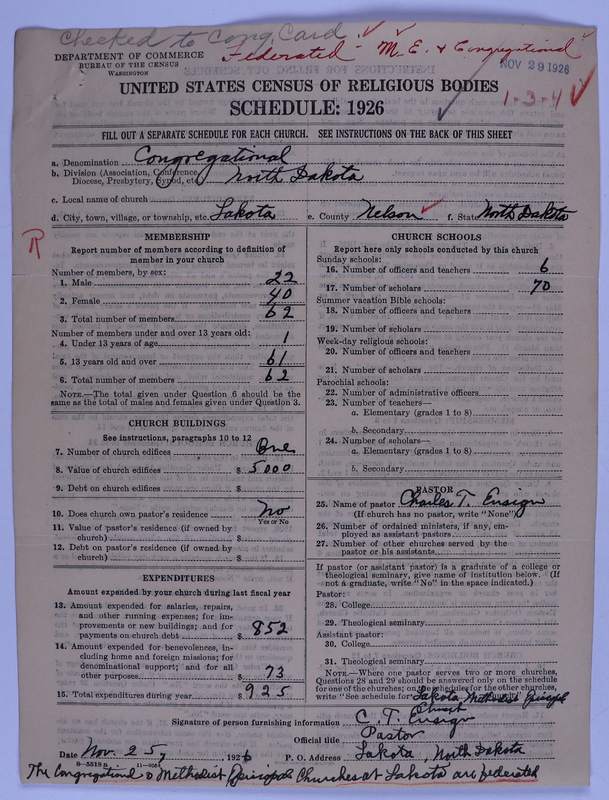 Checked to Cong. Card
Federated - M. E. & Congregational
DEPARTMENT OF COMMERCE
BUREAU OF THE CENSUS
WASHINGTON
NOV 29 1926
UNITED STATES CENSUS OF RELIGIOUS BODIES
1-3-4
SCHEDULE: 1926
FILL OUT A SEPARATE SCHEDULE FOR EACH CHURCH. SEE INSTRUCTIONS ON THE BACK OF THIS SHEET
a. Denomination Congregational
b. Division (Association, Conference, Diocese, Presbytery, Synod, etc.) North Dakota
c. Local name of church
d. City, town, village, or township, etc. Lakota e. County Nelson f. State North Dakota
R
MEMBERSHIP
Report number of members according to definition of
member in your church
Number of members, by sex:
1. Male 22
2. Female 40
3. Total number of members 62
Number of members under and over 13 years old:
4. Under 13 years of age 1
5. 13 years old and over 61
6. Total number of members 62
NOTE.—The total given under Question 6 should be the
same as the total of males and females given under Question 3.
CHURCH BUILDINGS
See instructions, paragraphs 10 to 12
7. Number of church edifices One
8. Value of church edifices $ 5000
9. Debt on church edifices $
10. Does church own pastor's residence No
Yes or No
11. Value of pastor's residence (if owned by
church) $
12. Debt on pastor's residence (if owned by
church) $
EXPENDITURES
Amount expended by your church during last fiscal year
13. Amount expended for salaries, repairs,
and other running expenses; for im-
provements or new buildings; and for
payments on church debt $ 852
14. Amount expended for benevolences, in-
cluding home and foreign missions; for
denominational support; and for all
other purposes $ 73
15. Total expenditures during year $ 925
CHURCH SCHOOLS
Report here only schools conducted by this church
Sunday schools:
16. Number of officers and teachers 6
17. Number of scholars 70
Summer vacation Bible schools:
18. Number of officers and teachers
19. Number of scholars
Week-day religious schools:
20. Number of officers and teachers
21. Number of scholars
Parochial schools:
22. Number of administrative officers
23. Number of teachers—
a. Elementary (grades 1 to 8)
b. Secondary
24. Number of scholars—
a. Elementary (grades 1 to 8)
b. Secondary
PASTOR
25. Name of pastor Charles T. Ensign
(If church has no pastor, write "None")
26. Number of ordained ministers, if any, em-
ployed as assistant pastors
27. Number of other churches served by the
pastor or his assistants
If pastor (or assistant pastor) is a graduate of a college or
theological seminary, give name of institution below. (If
not a graduate, write "No" in the space indicated.)
Pastor:
28. College
29. Theological seminary
Assistant pastor:
30. College
31. Theological seminary
NOTE.—Where one pastor serves two or more churches,
Questions 28 and 29 should be answered only on the schedule
for one of the churches; on the schedules for the other churches,
write "See schedule for Lakota Methodist Episcopal
Church
Signature of person furnishing information C. T. Ensign
Official title Pastor
Date Nov. 25, 1926 P. O. Address Lakota, North Dakota
8—5518 a 11—9051
The Congregational & Methodist Episcopal Churches at Lakota are federated